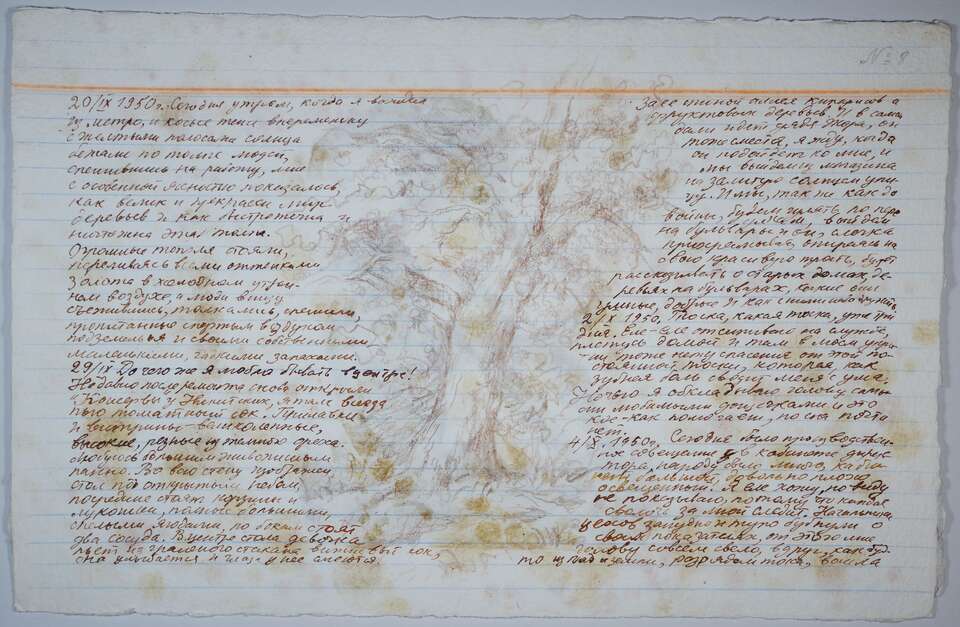 № 8
20/IX 1950г. Сегодня утром, когда я выходил
из метро, и косые тени вперемежку
с желтыми полосами солнца
бежали по толпе людей,
спешивших на работу, мне
с особенной ясностью показалось,
как велик и прекрасен мир
деревьев и как быстротечна и
ничтожна эта толпа.
Огромные тополя стояли,
переливаясь всеми оттенками
золота в холодном утрен-
нем воздухе, а люди внизу
суетились, толкались, спешили,
пропитанные спертым воздухом
подземелья и своими собственными,
маленькими, гадкими запахами.
29/IX До чего же я люблю бывать в центре!
Недавно после ремонта снова открыли
"Консервы" у Никитских, я там всегда
пью томатный сок. Прилавки
и витрины – великолепные,
высокие, резные из темного ореха.
большим живописным
панно. Во всю стену изображен
стол под открытым небом,
посредине стоят корзины и
лукошки, полные большими,
спелыми яблоками, по бокам стоят
два сосуда. В центре стола девочка
пьет из граненого стакана вишневый сок,
она улыбается и глаза у нее смеются.
За ее спиной аллея кипарисов и
фруктовых деревьев. И в самой
дали идет дядя Жора, он
тоже смеется, я жду, когда
он подойдет ко мне, и
мы выйдем из магазина
на залитую солнцем ули-
цу. И мы, так же как до
войны, будем гулять по
выйдем
на бульвары и он, слегка
прихрамывая, опираясь на
свою красивую трость, будет
рассказывать о старых домах, де-
ревьях на бульварах, какие они
умные, добрые и как с ними надо дружить.
2/X 1950, Тоска, какая тоска, уже три
дня. Еле-еле отсиживаю на службе,
плетусь домой и там в моем
тоже нету спасения от этой по-
стоянной тоски, которая как
зубная боль сводит меня с ума.
Ночью я обкладываю голову
любимыми дощечками и это
кое-как помогает, но на полча-
са.
4/X, 1950г, Сегодня было производствен-
ное совещание в кабинете дирек-
тора, народу было много, каби-
нет большой, довольно плохо
освещенный. Я его хожу, но виду
не показываю, потому что каждая
за мной следит. Начальник
цехов занудно и тупо бубнили о
своих показателях, от этого мне
голову совсем свело, вдруг, как буд-
то из под земли, разрядом тока, вошла